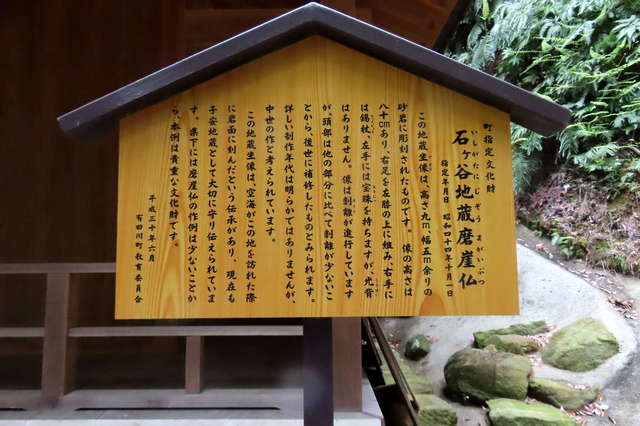 町指定文化財
いしがたにじぞう まがいぶつ
石ヶ谷地蔵磨崖仏
指定年月日 昭和四十四年十月一日
この地蔵坐像は、高さ九m、幅五m余りの
砂岩に彫刻されたものです。像の高さは
八十cmあり、右足を左膝の上に組み、右手に
は錫杖、左手には宝珠を持ちますが、光背
はありません。像は剥離が進行しています
が、頭部は他の部分に比べて剥離が少ないこ
とから、後世に補修したものとみられます。
詳しい制作年代は明らかではありませんが、
中世の作と考えられています。
この地蔵坐像は、空海がこの地を訪れた際
に岩面に刻んだという伝承があり、現在も
子安地蔵として大切に守り伝えられていま
す。県下には磨崖仏の作例は少ないことか
ら、本例は貴重な文化財です。
平成三十年六月
有田川町教育委員会